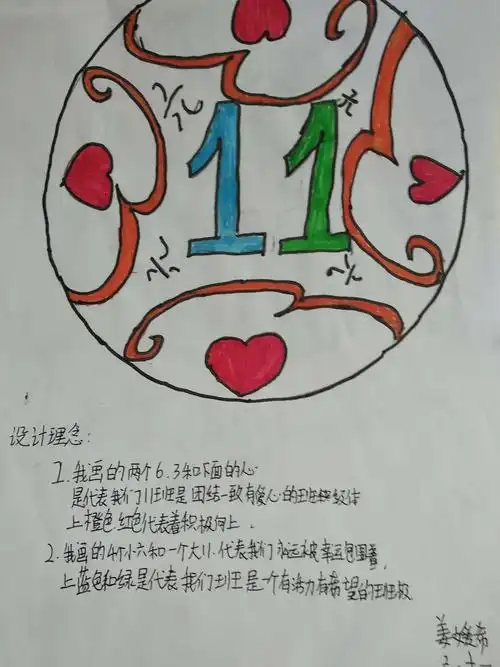 11
设计理念:
1. 我画的两个6.3和下面的心
是代表我们11班是团结一致有爱心的班级体
上橙色红色代表着积极向上.
2. 我画的4个小六和一个大11.代表我们永远被幸运包围着,
上蓝色和绿是代表我们班是一个有活力有希望的班级